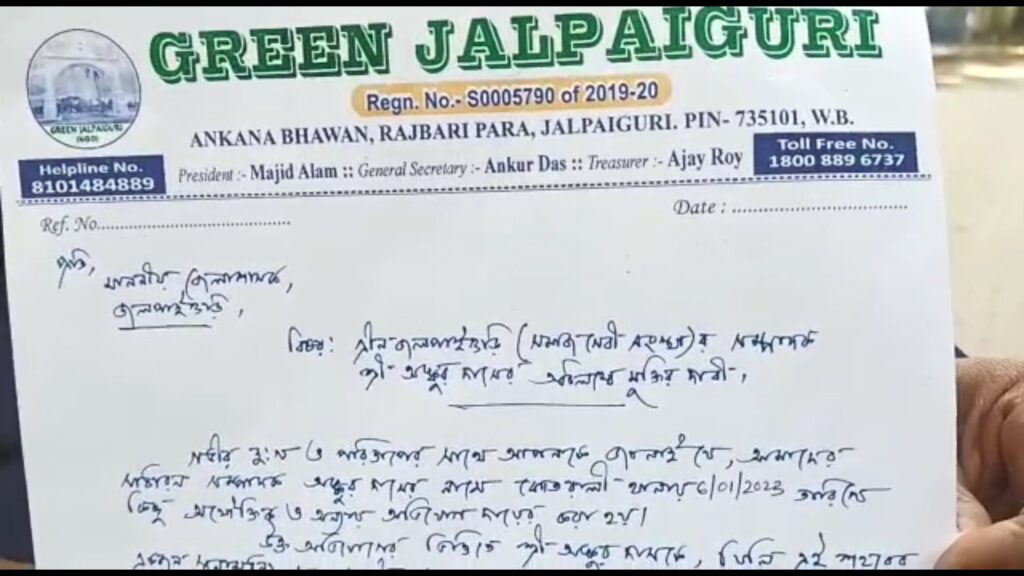 GREEN JALPAIGURI
Regn. No.- S0005790 of 2019-20
ANKANA BHAWAN, RAJBARI PARA, JALPAIGURI. PIN- 735101, W.B.
GREEN JALPAIGURI
(NGO)
Helpline No.
8101484889
President :- Majid Alam :: General Secretary :- Ankur Das :: Treasurer :- Ajay Roy
Toll Free No.
1800 889 6737
Ref. No.
Date :
প্রতি,
মাননীয় জেলাশাসক,
জলপাইগুড়ি,
বিষয়: গ্রীন জলপাইগুড়ি (সমাজসেবী সংস্থা)র সম্পাদক
শ্রী অঙ্কুর দাসের অবিলম্বে মুক্তির দাবী,
গভীর দুঃখ ও পরিতাপের সাথে আপনাকে জানাই যে, আমাদের
সাধারন সম্পাদক অঙ্কুর দাসের নামে কোতয়ালী থানায় 6/01/2023 তারিখে
কিছু অযৌক্তিক ও অন্যায় অভিযোগ দায়ের করা হয়।
উক্ত অভিযোগের ভিত্তিতে শ্রী অঙ্কুর দাসকে, যিনি এই শহরের